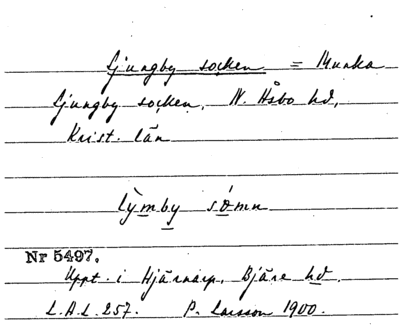 Ljungby socken = Munka
Ljungby socken, N. Åsbo hd,
Krist. län
lỳmby sómn
Nr 5497.
Uppt. i Hjärnarp, Bjäre hd.
L.A.L. 257. P. Larsson 1900.